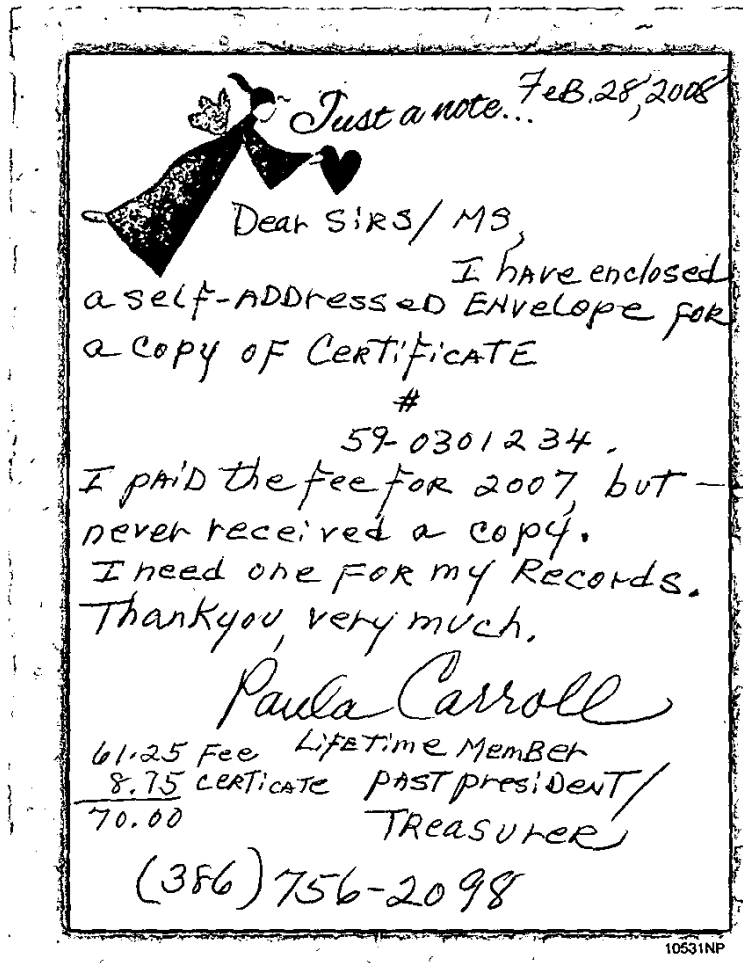 Just a note... FeB. 28, 2008
Dear SIRS/ MS,
I have enclosed
a self-ADDressed ENvelope for
a copy of CeRTificATE
#
59-0301234.
I pAiD the fee foR 2007, but —
never received a copy.
I need one FoR my Records.
Thankyou, very much.
Paula Carroll
61.25 Fee LifeTime MemBer
8.75 ceRTicATe pAST presiDeNT/
70.00 TReasurer
(386) 756-2098
10531NP